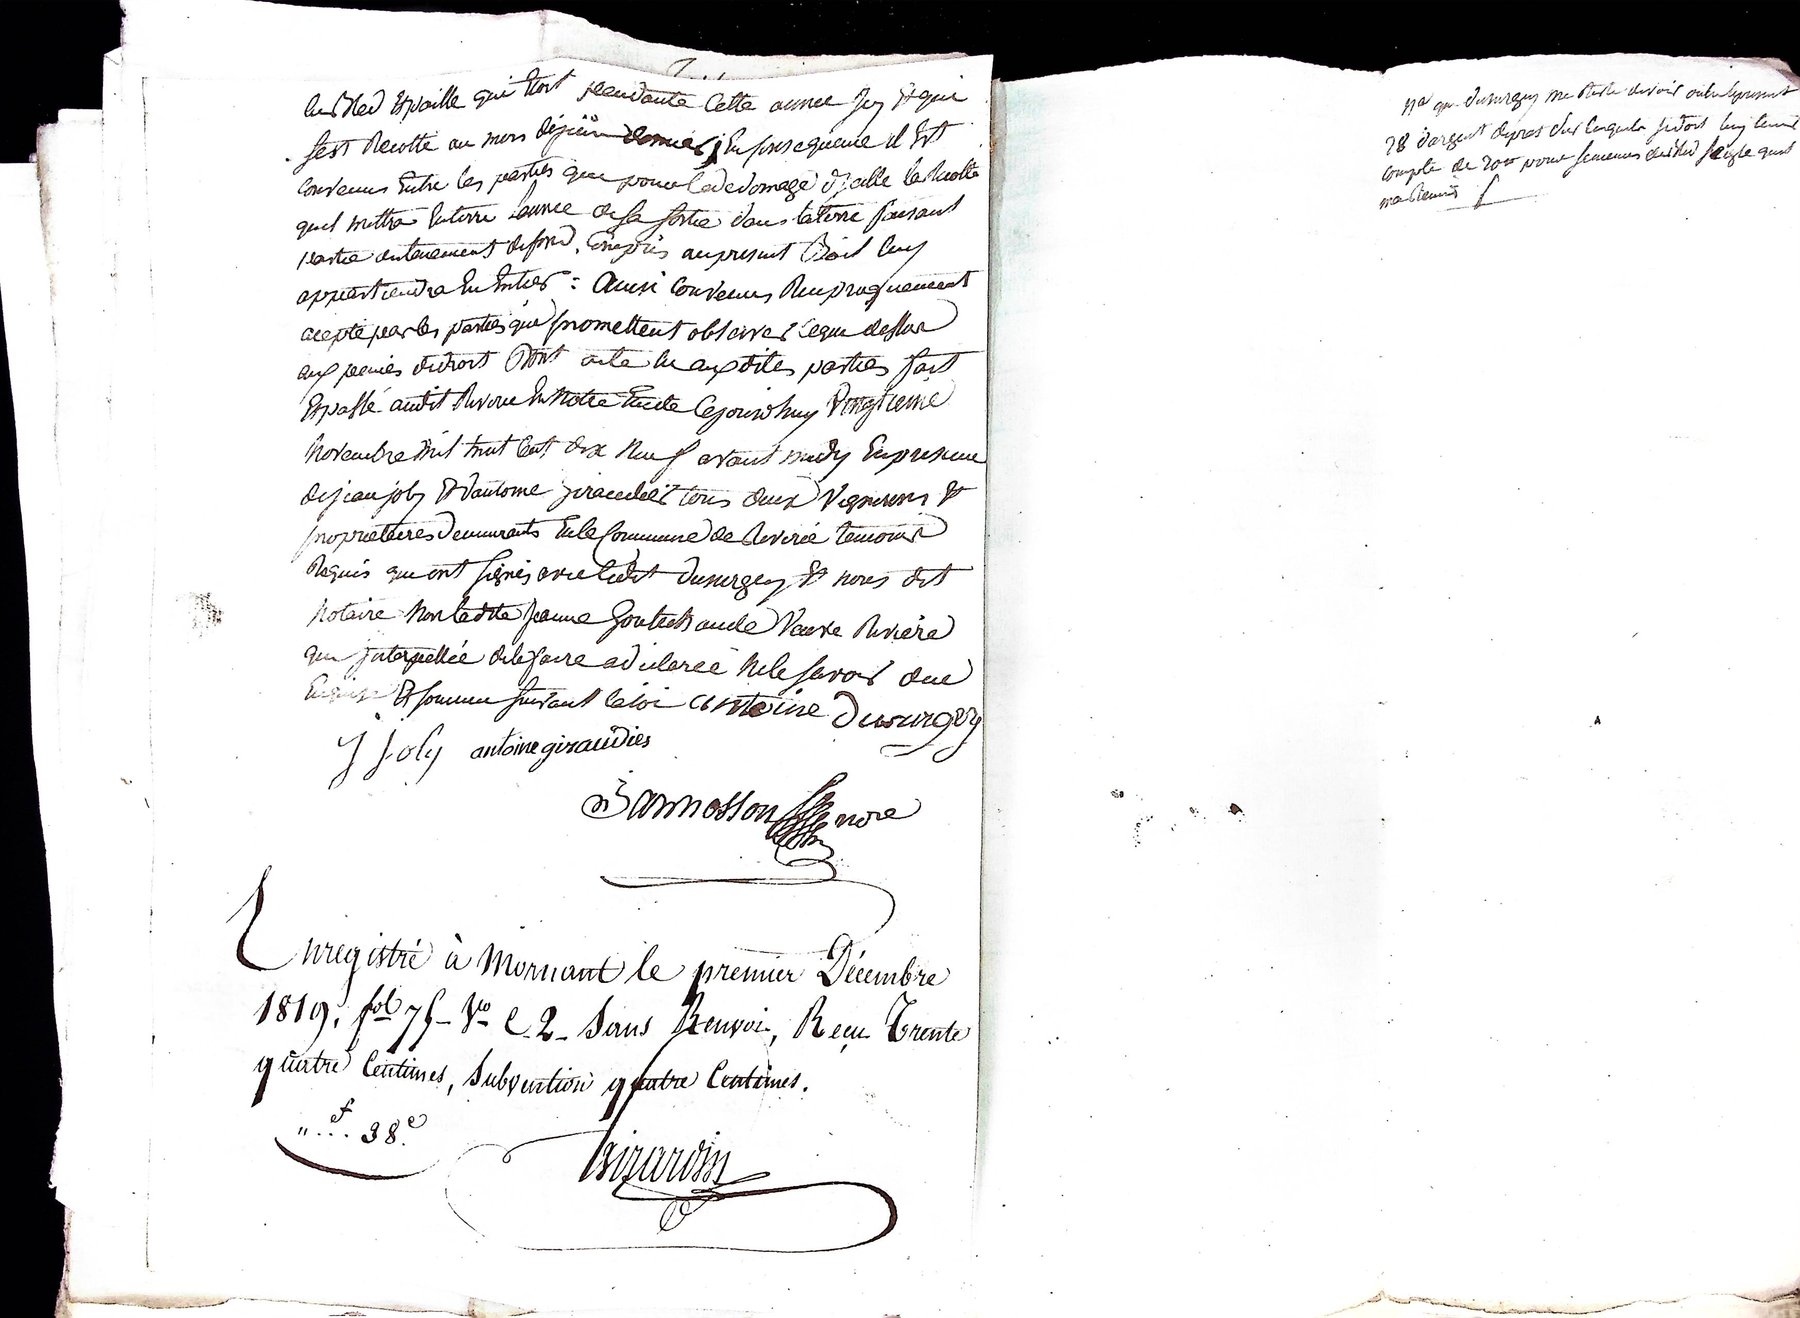 bled Et paille qui Etoit pendante Cette année Icy Et qui
s'est Recolté au mois de juin dernier, En Consequence il Est
Convenus Entre les parties que pour le dedomagé d'icelle la Recolte
quil mettra En terre l'année de sa sortie dans la terre faisant
partie du tenement de fond, Compris au present Bail luy
appartiendra En Entier : Ainsi Convenus Reciproquement
accepté par les parties qui promettent observer ce que dessus
aux peines de droit Dont acte lu aux dites parties fait
Et passé audit Riverie En Notre Etude Cejourd'huy Vingtieme
Novembre Mil huit Cent dix Neuf avant midy En presence
de jean joly Et d'antoine giraudier tous deux Vignerons Et
proprietaires demeurants En la Commune de Riverie temoins
Requis qui ont signés avec ledit dusurgey Et nous dit
Notaire Non ladite Jeanne Veuve Riviere
qui interpellée de le faire a declarée Ne le savoir due
Et sommée suivant la loi antoine Dusurgey
J Joly antoine giraudier
nore
Enregistré à Mornant le premier Décembre
1819, fol 75 Vo C 2 Sans Renvoi, Reçu Trente
quatre Centimes, Subvention quatre Centimes.
" f 38 c
Girardin
que dusurgey me Reste devoir present
28 d'argent
compte de pour semences du bled seigle quil